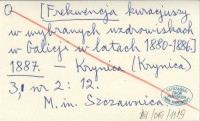 O [Frekwencja kuracjuszy
w wybranych uzdrowiskach
w Galicji w latach 1880-1886.]
1887. – Krynica (Krynica)
3, nr 2: 12.
M. in. Szczawnica